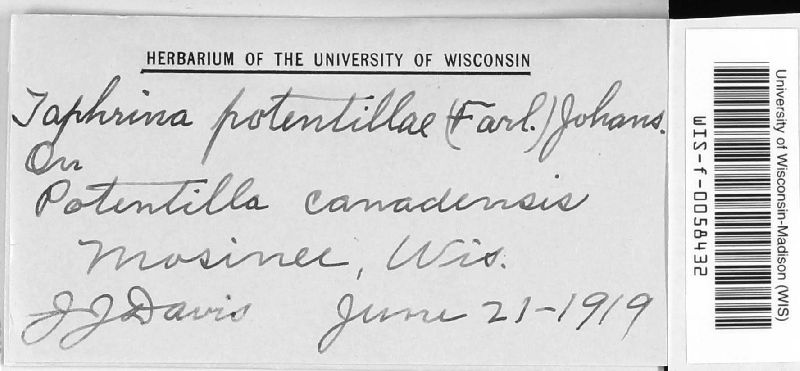 HERBARIUM OF THE UNIVERSITY OF WISCONSIN
Taphrina potentillae (Farl.) Johans.
On
Potentilla canadensis
Mosinee, Wis.
J J Davis June 21-1919
University of Wisconsin-Madison (WIS)
WIS-f-0058432